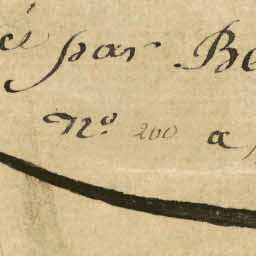 é par Be
N.º 200 a